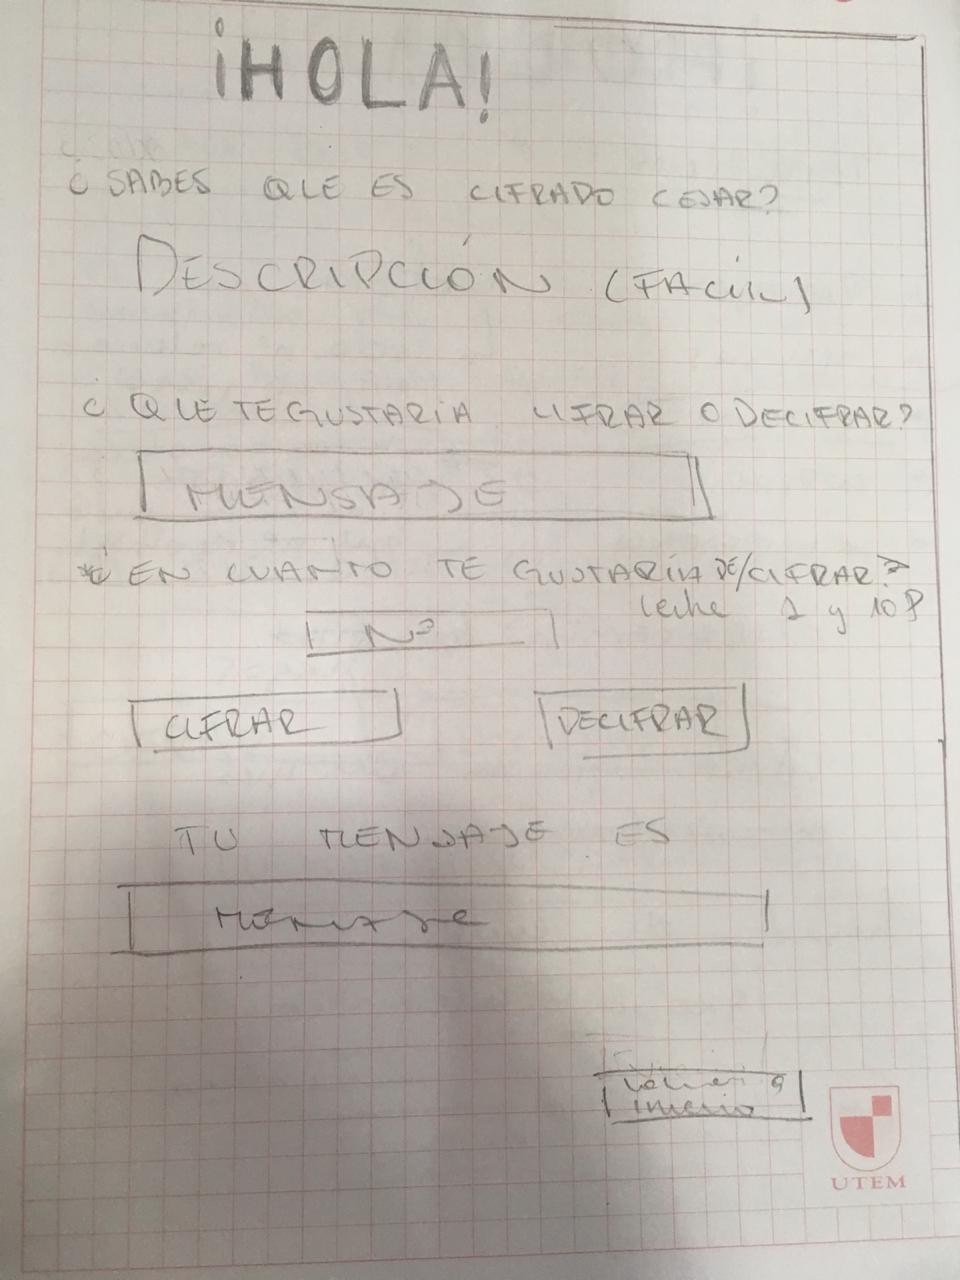 ¡HOLA!
¿SABES QUE ES CIFRADO CESAR?
DESCRIPCIÓN (FACIL)
¿QUE TE GUSTARIA CIFRAR O DECIFRAR?
MENSAJE
¿EN CUANTO TE GUSTARÍA DE/CIFRAR?
1 y 10?
N°
CIFRAR DECIFRAR
TU MENSAJE ES
MENSAJE
volver a
inicio
UTEM